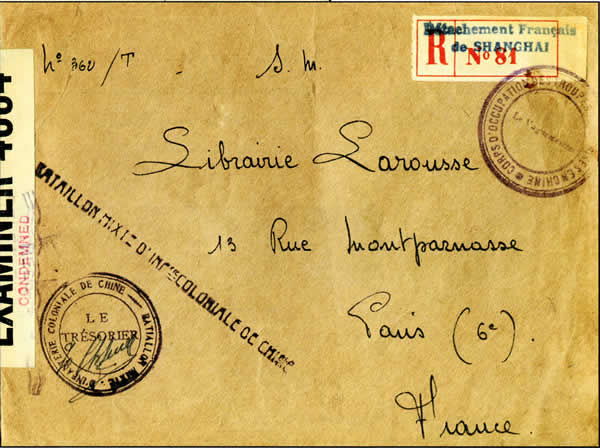 Détachement Français
de SHANGHAI
R No 81
No 360/T
S. M.
CORPS D'OCCUPATION DES TROUPES EN CHINE
Librairie Larousse
13 Rue Montparnasse
Paris (6e).
France.
BATAILLON MIXTE D'INFIE COLONIALE DE CHINE
BATAILLON MIXTE D'INFANTERIE COLONIALE DE CHINE
LE
TRÉSORIER
EXAMINER
CONDEMNED